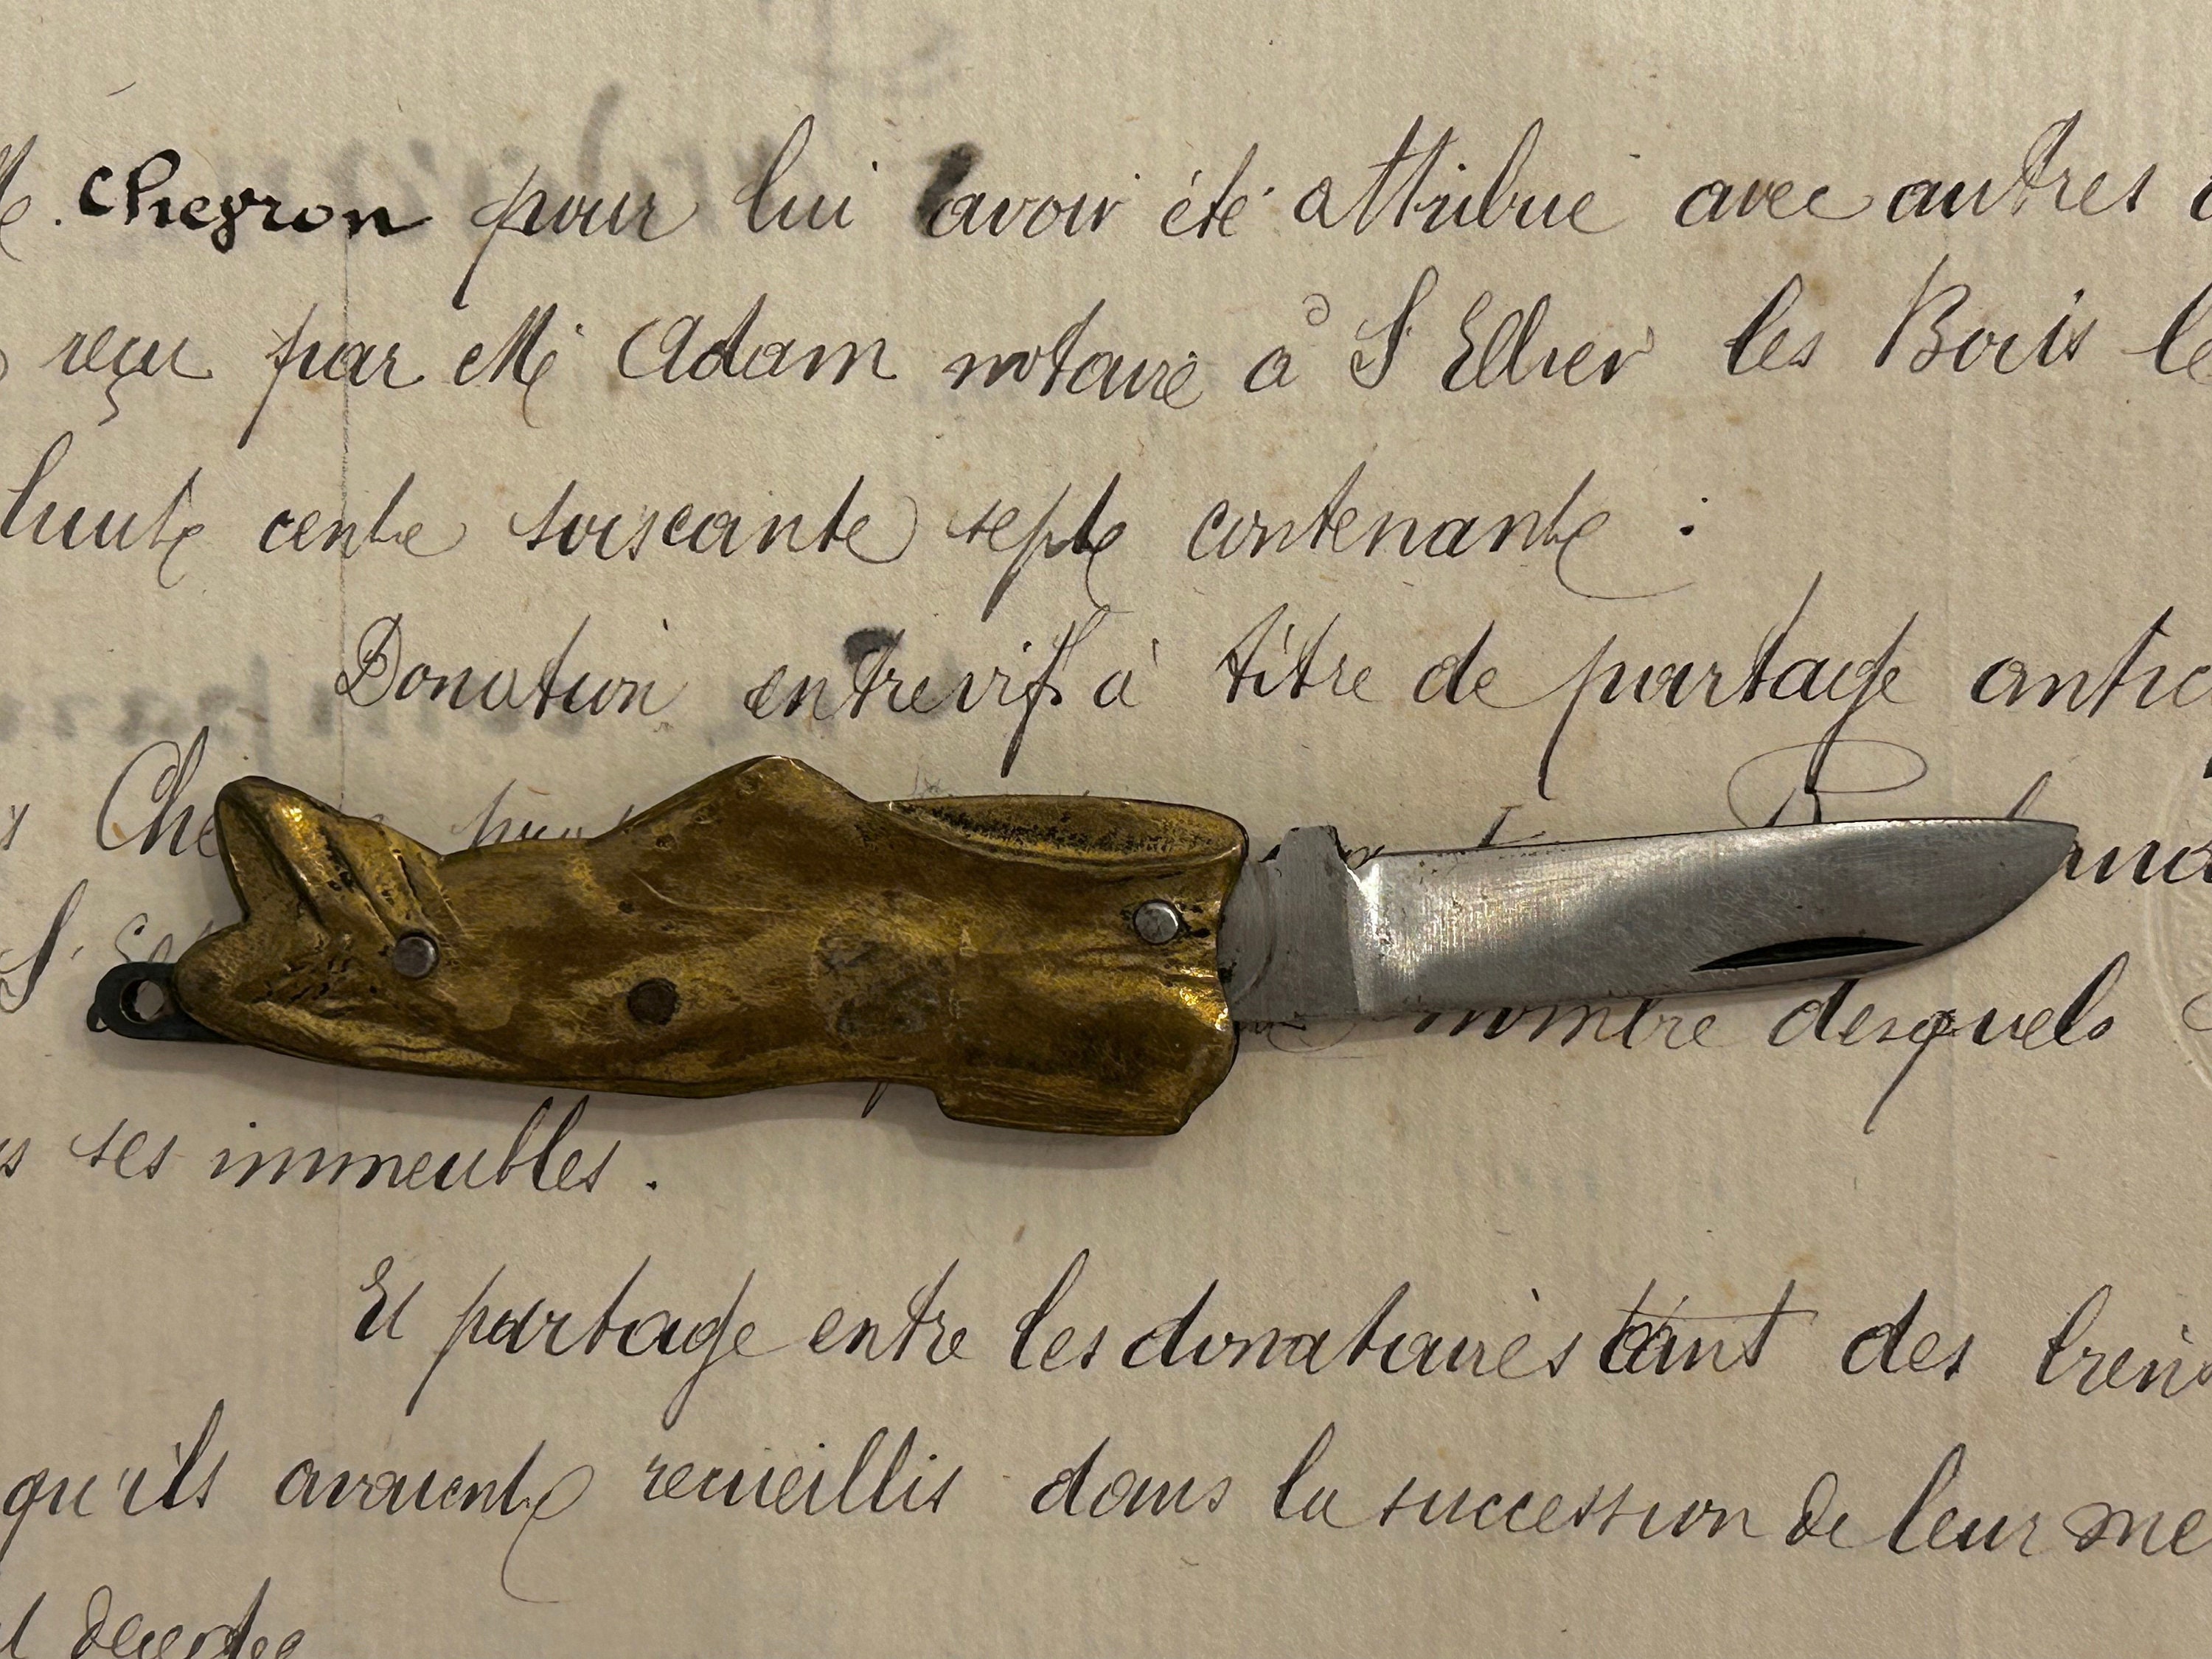 Chegron pour lui avoir été attribué avec autres
reçu par Me Adam notaire à St Ellier les Bois le
huit cent soixante sept contenant :
Donation entrevifs à titre de partage antic
Che
nombre desquels
ses immeubles .
Et partage entre les donataires tant des
qu'ils avaient recueillis dans la succession de leur me